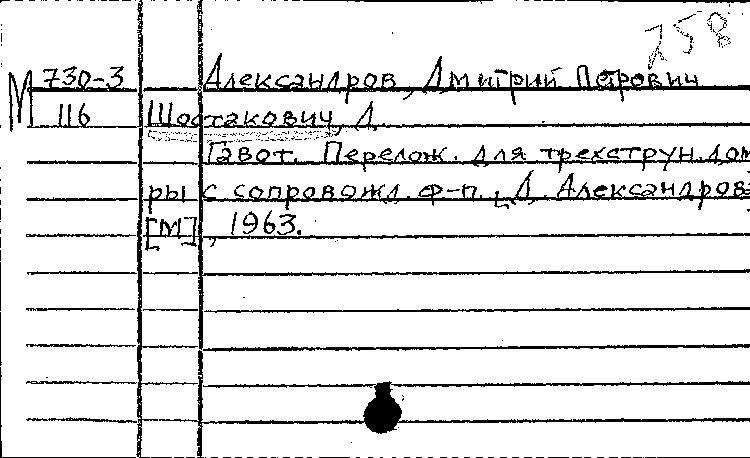 258
М 730-3 Александров, Дмитрий Петрович
116 Шостакович, Д.
Гавот. Перелож. для трехструн. дом
ры с сопровожд. ф-п. Д. Александров
[М], 1963.